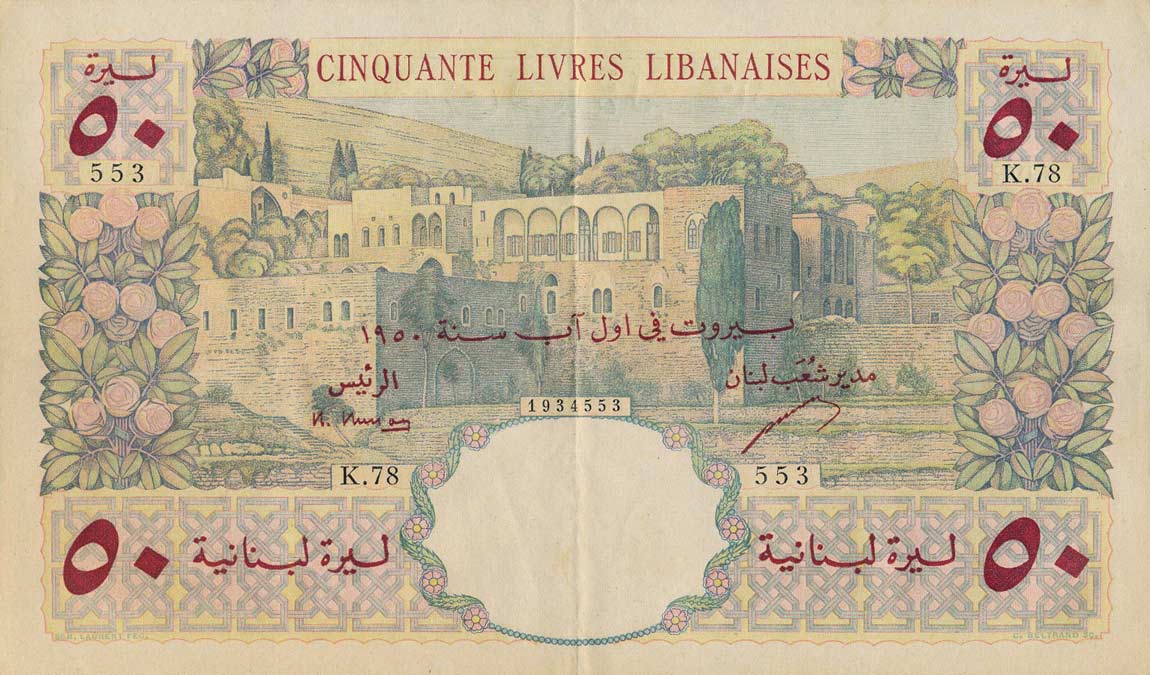 CINQUANTE LIVRES LIBANAISES
ليرة
٥٠
553
ليرة
٥٠
K.78
بيروت في اول آب سنة ١٩٥٠
مدير شُعَب لبنان
الرئيس
1934553
K.78
553
٥٠ ليرة لبنانية
ليرة لبنانية ٥٠
LAURENT FEC.
C. BELTRAND SC.